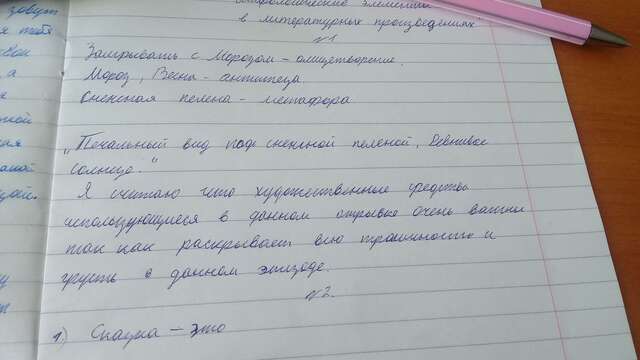 зовут
мифологические элементы
в литературных произведениях
№1
Заигрывать с Морозом – олицетворение.
Мороз, Весна – антитеза.
Снежная пелена – метафора
„Печальный вид под снежной пеленой, Ревнивое
солнце."
Я считаю что художественные средства
использующиеся в данном отрывке очень важны
так как раскрывает всю трагичность и
грусть в данном эпизоде.
№2.
1) Сказка – это